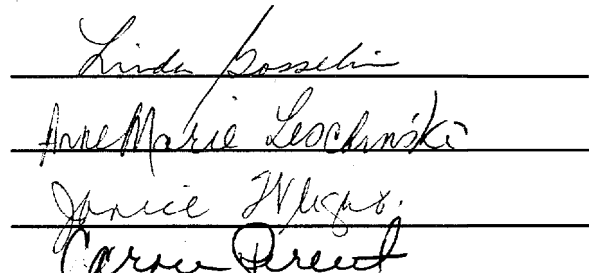 Linda Gosselin
AnneMarie Leschinski
Janice
Carole Parent